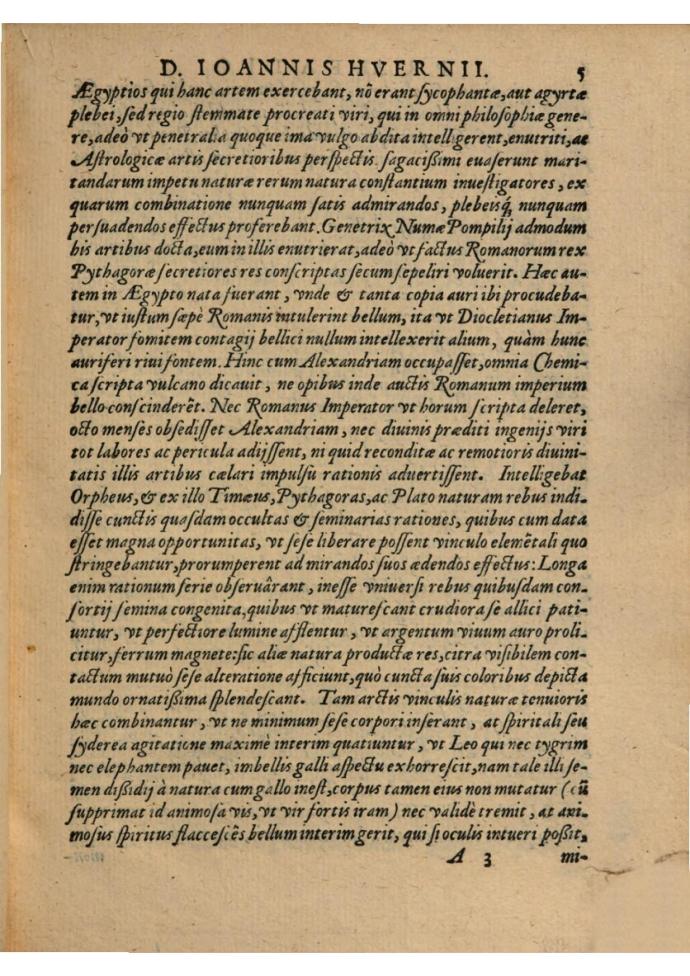 D. IOANNIS HVERNII. 5
Ægyptios qui hanc artem exercebant, nõ erant sycophantæ, aut agyrtæ
plebei, sed regio stemmate procreati viri, qui in omni philosophiæ gene-
re, adeò vt penetralia quoque ima vulgo abdita intelligerent, enutriti, ac
Astrologicæ artis secretioribus perspectis. sagacißimi euaserunt mari-
tandarum impetu naturæ rerum natura constantium inuestigatores, ex
quarum combinatione nunquam satis admirandos, plebeisq́, nunquam
persuadendos effectus proferebant. Genetrix Numæ Pompilij admodum
his artibus docta, eum in illis enutrierat, adeò vt factus Romanorum rex
Pythagoræ secretiores res conscriptas secum sepeliri voluerit. Hæc au-
tem in Ægypto nata fuerant, vnde & tanta copia auri ibi procudeba-
tur, vt iustum sæpè Romanis intulerint bellum, ita vt Diocletianus Im-
perator fomitem contagij bellici nullum intellexerit alium, quàm hunc
auriferi riui fontem. Hinc cum Alexandriam occupasset, omnia Chemi-
ca scripta vulcano dicauit, ne opibus inde auctis Romanum imperium
bello conscinderẽt. Nec Romanus Imperator vt horum scripta deleret,
octo menses obsedisset Alexandriam, nec diuinis præditi ingenijs viri
tot labores ac pericula adijssent, ni quid reconditæ ac remotioris diuini-
tatis illis artibus cælari impulsu rationis aduertissent. Intelligebat
Orpheus, & ex illo Timæus, Pythagoras, ac Plato naturam rebus indi-
disse cunctis quasdam occultas & seminarias rationes, quibus cum data
esset magna opportunitas, vt sese liberare possent vinculo elemẽtali quo
stringebantur, prorumperent ad mirandos suos ædendos effectus: Longa
enim rationum serie obseruârant, inesse vniuersi rebus quibusdam con-
sortij semina congenita, quibus vt maturescant crudiora se allici pati-
untur, vt perfectiore lumine afflentur, vt argentum viuum auro proli-
citur, ferrum magnete: sic aliæ natura productæ res, citra visibilem con-
tactum mutuò sese alteratione afficiunt, quò cuncta suis coloribus depicta
mundo ornatißima splendescant. Tam arctis vinculis naturæ tenuioris
hæc combinantur, vt ne minimum sese corpori inserant, at spiritali seu
syderea agitatione maximè interim quatiuntur, vt Leo qui nec tygrim
nec elephantem pauet, imbellis galli aspectu exhorrescit, nam tale illi se-
men dißidij à natura cum gallo inest, corpus tamen eius non mutatur (cũ
supprimat id animosa vis, vt vir fortis iram) nec validè tremit, at ani-
mosius spiritus flaccescẽs bellum interim gerit, qui si oculis intueri poßit,
A 3 mi-